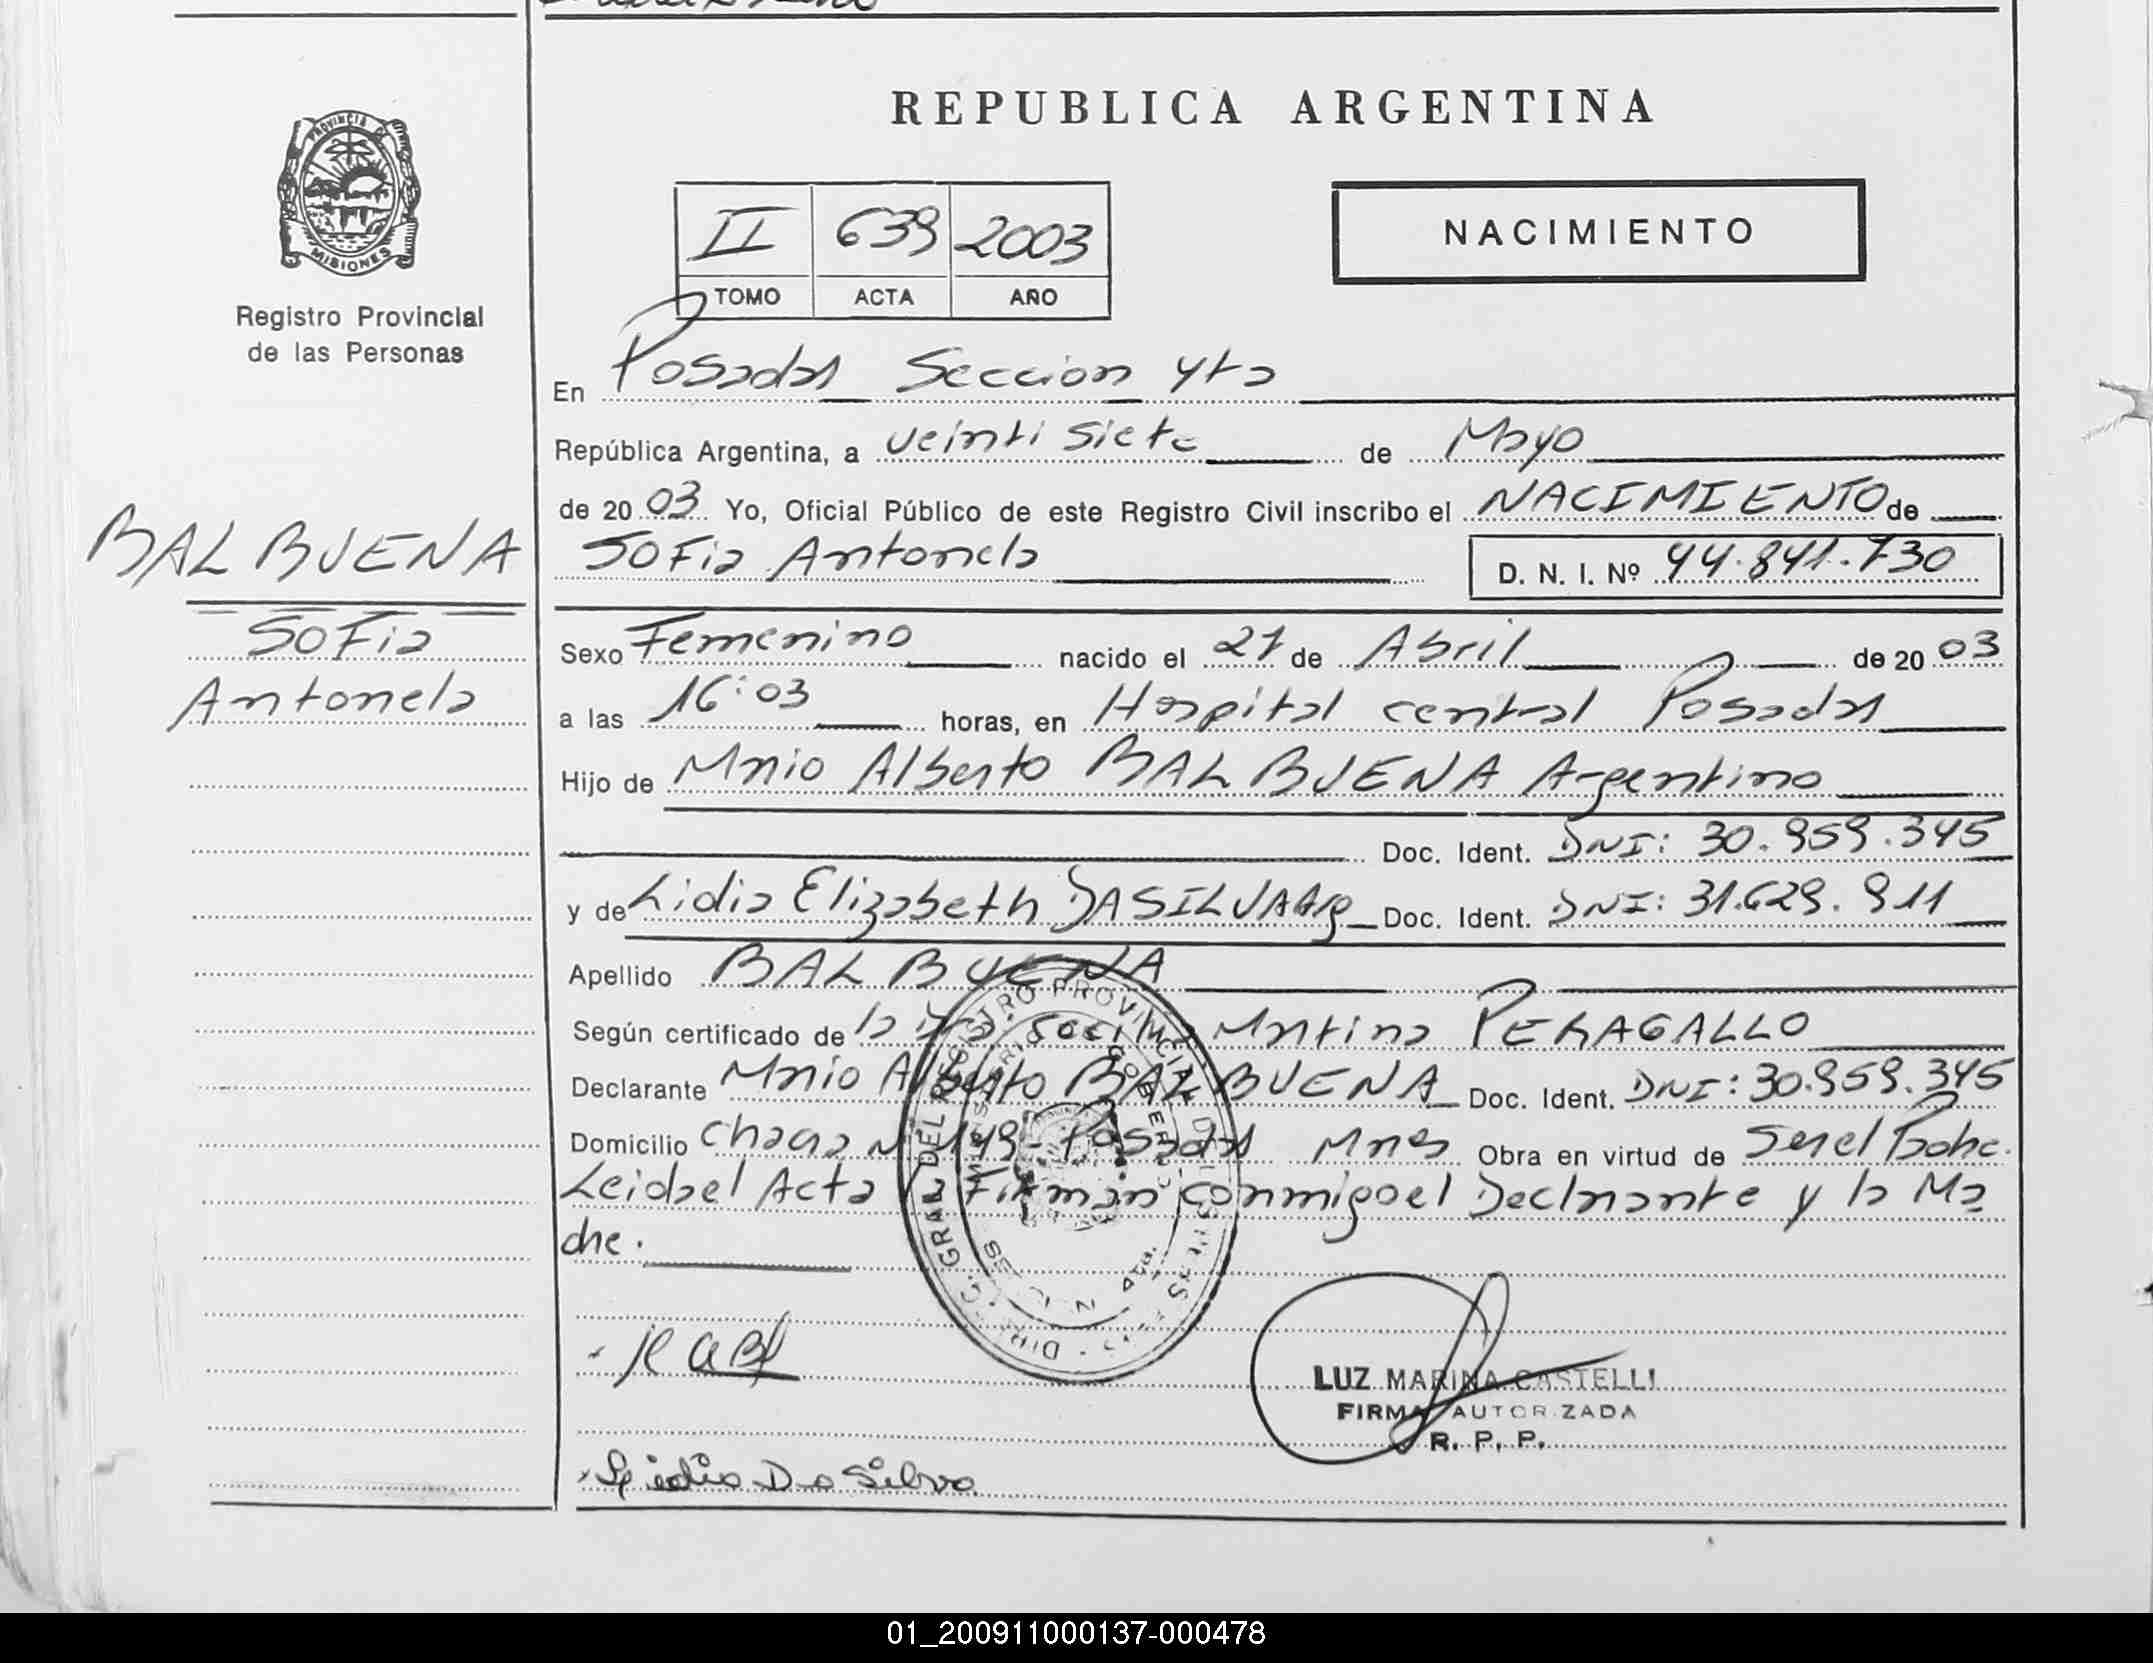 REPUBLICA ARGENTINA
PROVINCIA DE
MISIONES
Registro Provincial
de las Personas
II 639 2003
TOMO ACTA AÑO
NACIMIENTO
En Posadas Seccion 4ta
República Argentina, a veinti siete de Mayo
de 20 03 Yo, Oficial Público de este Registro Civil inscribo el NACIMIENTO de
BALBUENA
Sofia
Antonela
Sofia Antonela D. N. I. Nº 44.841.730
Sexo Femenino nacido el 27 de Abril de 20 03
a las 16:03 horas, en Hospital central Posadas
Hijo de Mario Alberto BALBUENA Argentino
Doc. Ident. DNI: 30.959.345
y de Lidia Elizabeth DASILVA Arg Doc. Ident. DNI: 31.629.911
Apellido BALBUENA
Según certificado de la Dra. Martina PERAGALLO
Declarante Mario Alberto BALBUENA Doc. Ident. DNI: 30.959.345
Domicilio Chacra N 149 - Posadas Mnes Obra en virtud de Ser el Padre.
Leida el Acta la Firman conmigo el Declarante y la Ma
dre.
LUZ MARINA CASTELLI
FIRMA AUTORIZADA
R. P. P.
Lidia Da Silva
01_200911000137-000478